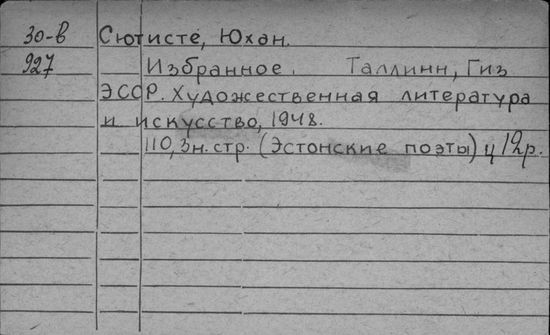 30-в Сютисте, Юхан.
927 Избранное. Таллинн, Гиз
ЭССР. Художественная литература
и искусство, 1948.
110, 3н. стр. (Эстонские поэты) ц 12р.